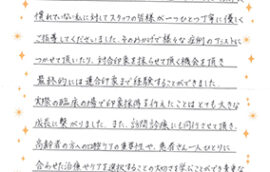 慣れていない私に対してスタッフの皆様が一つひとつ丁寧に優しく
ご指導してくださいました。そのおかげで様々な症例のアシストに
つかせて頂いたり、対合印象を採らせて頂く機会を頂き
最終的には連合印象まで経験することができました。
実際の臨床の場で印象採得を行えたことはとても大きな
成長に繋がりました。また、訪問診療にも同行させて頂き、
高齢者の方への口腔ケアの重要性や、患者さん一人ひとりに
合わせた治療やケアを選択することの大切さを学ぶことができ貴重な